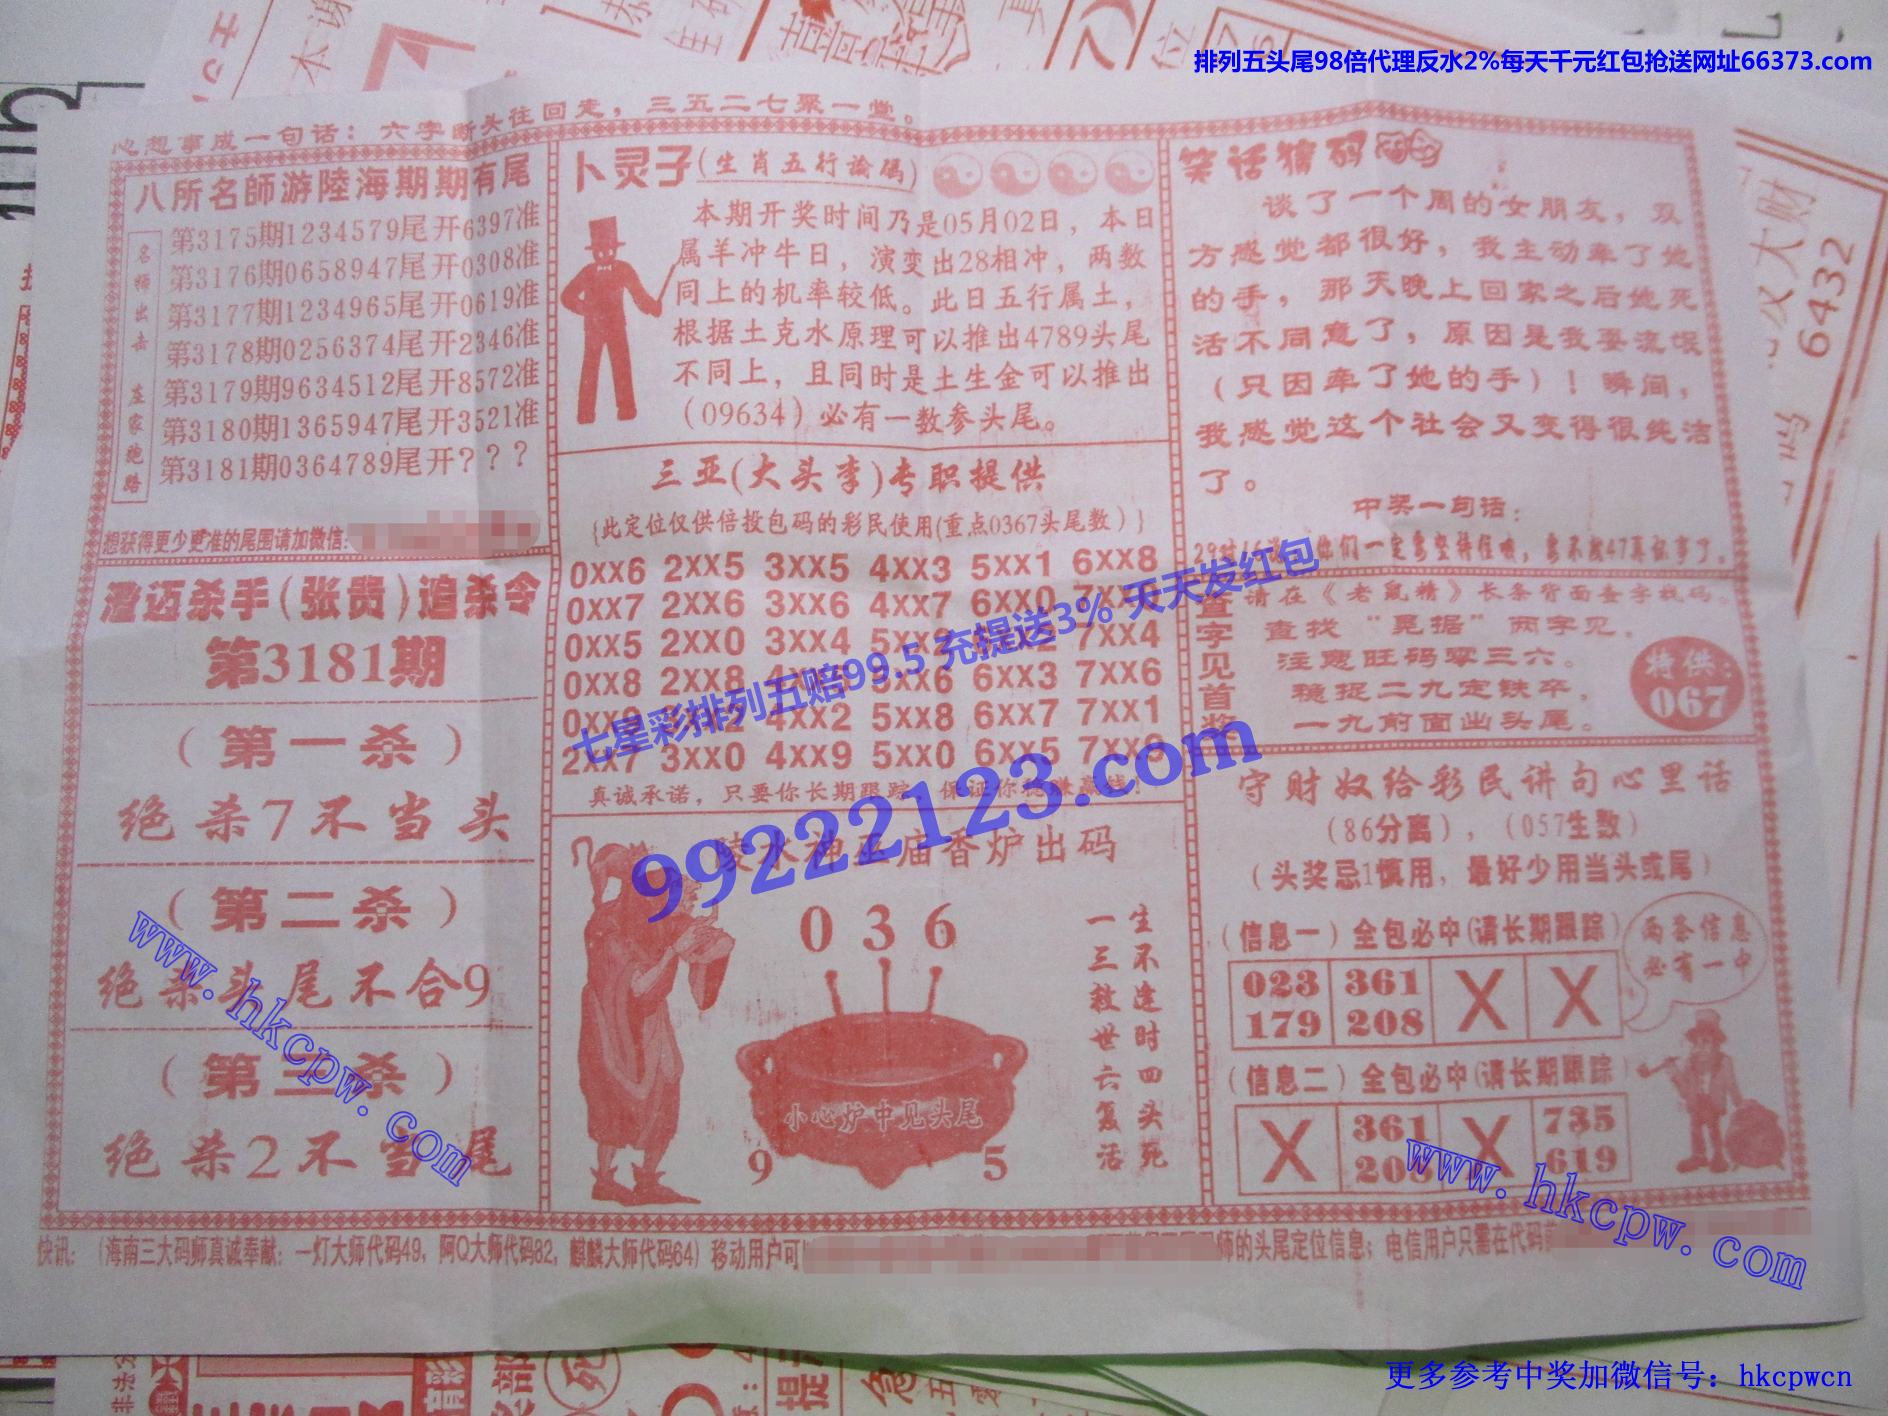 排列五头尾98倍代理反水2%每天千元红包抢送网址66373.com
心想事成一句话：六字断头往回走，三五二七聚一堂。
八所名師游陸海期期有尾
名师出击 在家跑路
第3175期1234579尾开6397准
第3176期0658947尾开0308准
第3177期1234965尾开0619准
第3178期0256374尾开2346准
第3179期9634512尾开8572准
第3180期1365947尾开3521准
第3181期0364789尾开？？？
想获得更少更准的尾围请加微信:
澄迈杀手(张贵)追杀令
第3181期
（第一杀）
绝杀7不当头
（第二杀）
绝杀头尾不合9
（第三杀）
绝杀2不当尾
卜灵子(生肖五行论码)
本期开奖时间乃是05月02日，本日
属羊冲牛日，演变出28相冲，两数
同上的机率较低。此日五行属土，
根据土克水原理可以推出4789头尾
不同上，且同时是土生金可以推出
（09634）必有一数参头尾。
三亚(大头李)专职提供
{此定位仅供倍投包码的彩民使用(重点0367头尾数）}
0xx6 2xx5 3xx5 4xx3 5xx1 6xx8
0xx7 2xx6 3xx6 4xx7 6xx0
0xx5 2xx0 3xx4 7xx4
0xx8 2xx8 6xx3 7xx6
4xx2 5xx8 6xx7 7xx1
2xx7 3xx0 4xx9 5xx0 6xx5
真诚承诺，只要你长期跟踪，保证你稳赚赢钱！
水神王庙香炉出码
0 3 6
小心炉中见头尾
9 5
生不逢时四头死
一三救世六复活
笑话猜码
谈了一个周的女朋友，双
方感觉都很好，我主动牵了她
的手，那天晚上回家之后她死
活不同意了，原因是我耍流氓
（只因牵了她的手）！瞬间，
我感觉这个社会又变得很纯洁
了。
中奖一句话：
你们一定要坚持住哦，要不就47真没事了。
查字见首奖
请在《老鼠精》长条背面查字找码。
查找“晃据”两字见，
注意旺码零三六。
稳捉二九定铁卒，
一九前面出头尾。
特供：
067
守财奴给彩民讲句心里话
（86分离），（057生数）
（头奖忌1慎用，最好少用当头或尾）
（信息一）全包必中(请长期跟踪）
023 361 X X
179 208
两条信息
必有一中
（信息二）全包必中(请长期跟踪）
X 361 X 735
208 619
快讯：（海南三大码师真诚奉献：一灯大师代码49，阿Q大师代码82，麒麟大师代码64）移动用户可
师的头尾定位信息；电信用户只需在代码前
七星彩排列五赔99.5 充提送3% 天天发红包
99222123.com
www.hkcpw.com
www.hkcpw.com
6432
更多参考中奖加微信号：hkcpwcn